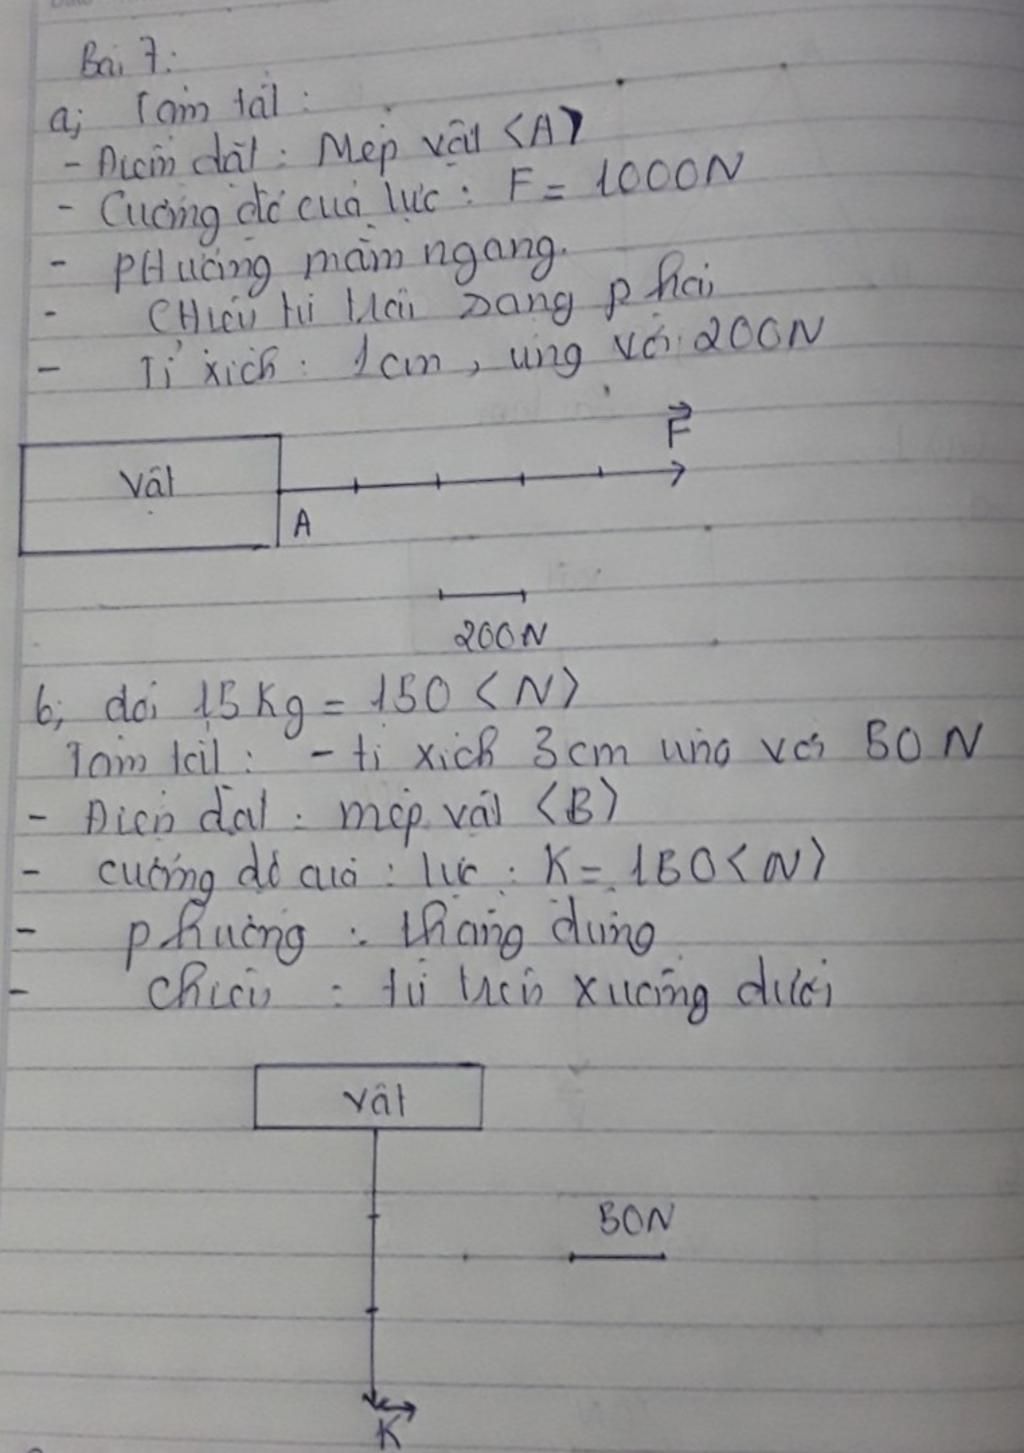 Bài 7:
a; Tóm tắt:
- Điểm đặt: Mép vật <A>
- Cường độ của lực: F = 1000N
- PHương nằm ngang.
- CHiều từ trái sang phải
- Tỉ xích: 1cm, ứng với 200N
F
Vật
A
200N
b; đổi 15Kg = 150 <N>
Tóm tắt: - tỉ xích 3cm ứng với 50N
- Điểm đặt: mép vật <B>
- cường độ của: lực: K = 150<N>
- phương: thẳng đứng
- chiều: từ trên xuống dưới
Vật
50N
K